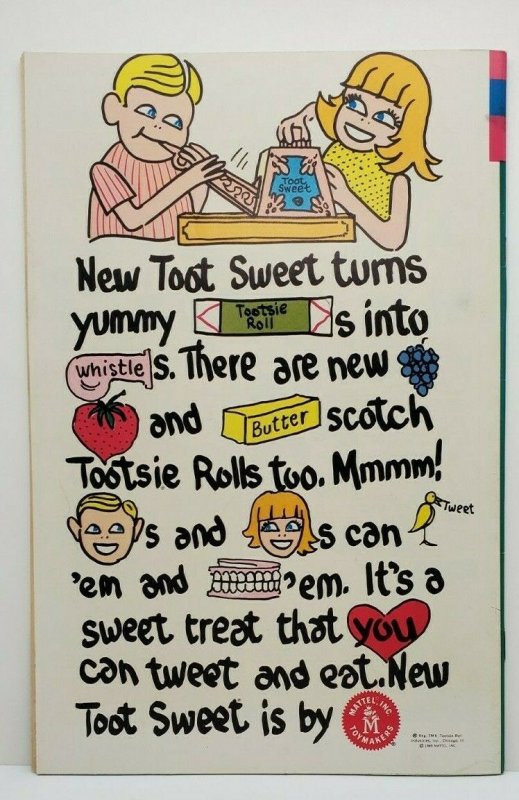 Toot Sweet
New Toot Sweet turns
yummy Tootsie Roll s into
whistle s. There are new
and Butter scotch
Tootsie Rolls too. Mmmm!
s and s can Tweet
'em and 'em. It's a
sweet treat that you
can tweet and eat. New
Toot Sweet is by MATTEL, INC. TOYMAKERS M
® Reg. TM'k Tootsie Roll
Industries, Inc., Chicago, Ill.
© 1969 MATTEL, INC.